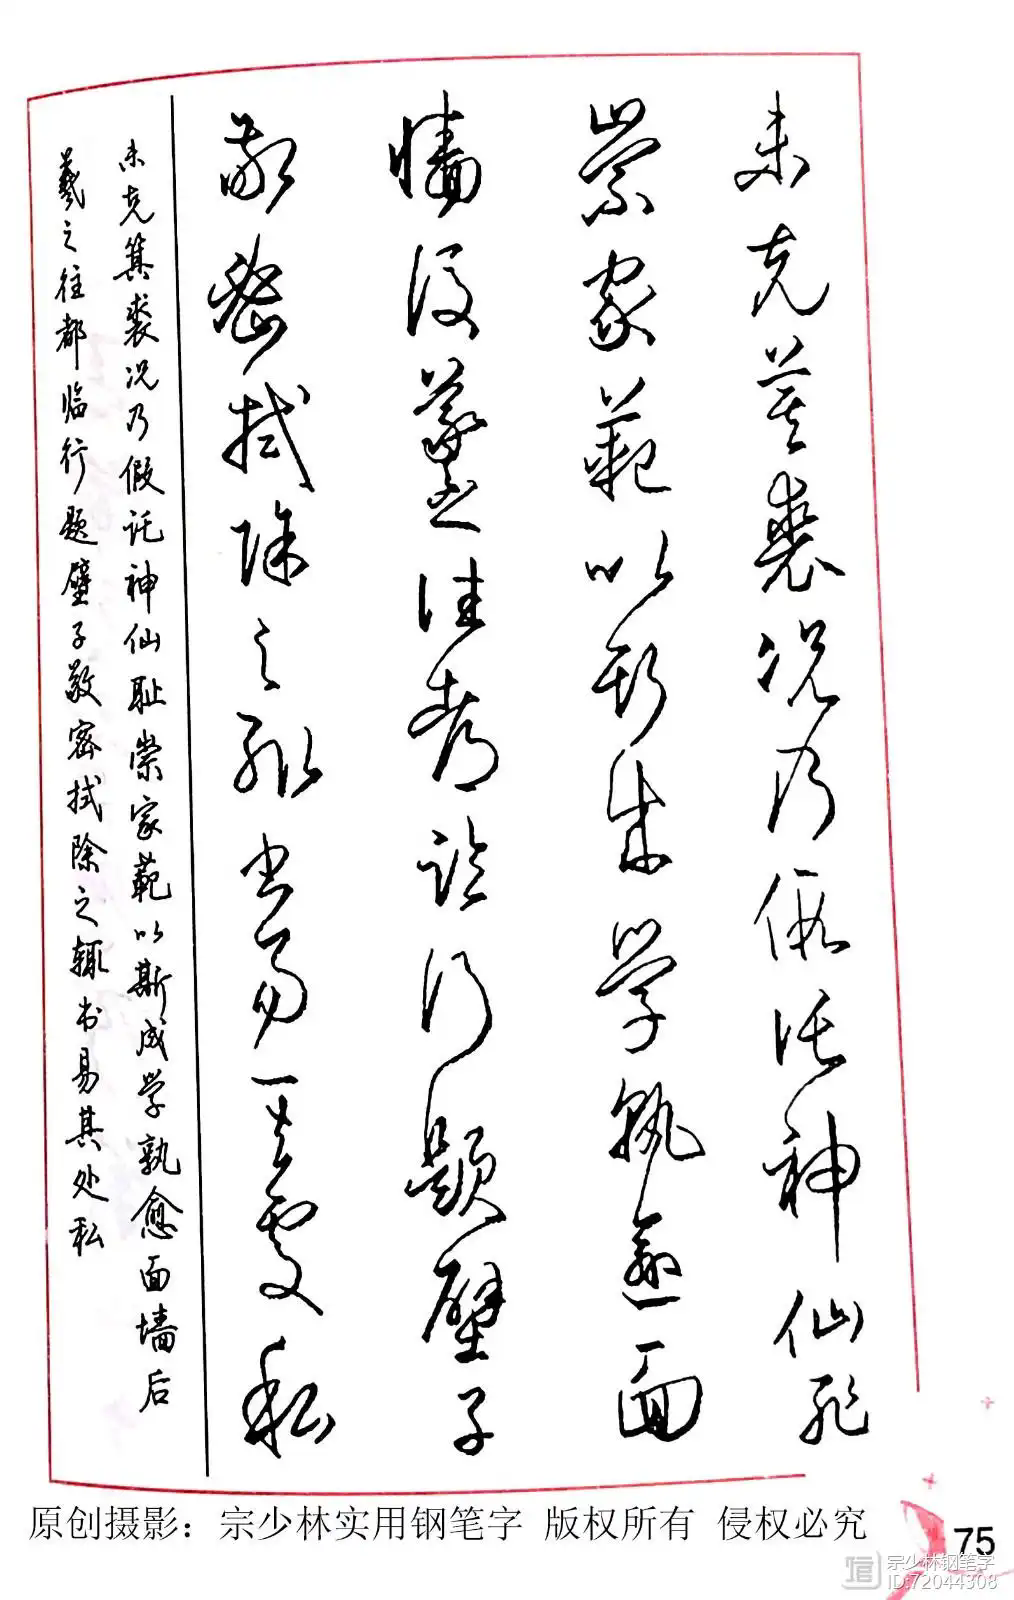 未克箕裘况乃假讬神仙耻
崇家範以斯成学孰愈面
墙后羲之往都临行题壁子
敬密拭除之辄书易其处私
未克箕裘况乃假讬神仙耻崇家範以斯成学孰愈面墙后
羲之往都临行题壁子敬密拭除之辄书易其处私
原创摄影：宗少林实用钢笔字 版权所有 侵权必究
75
宗少林钢笔字
ID:72044308